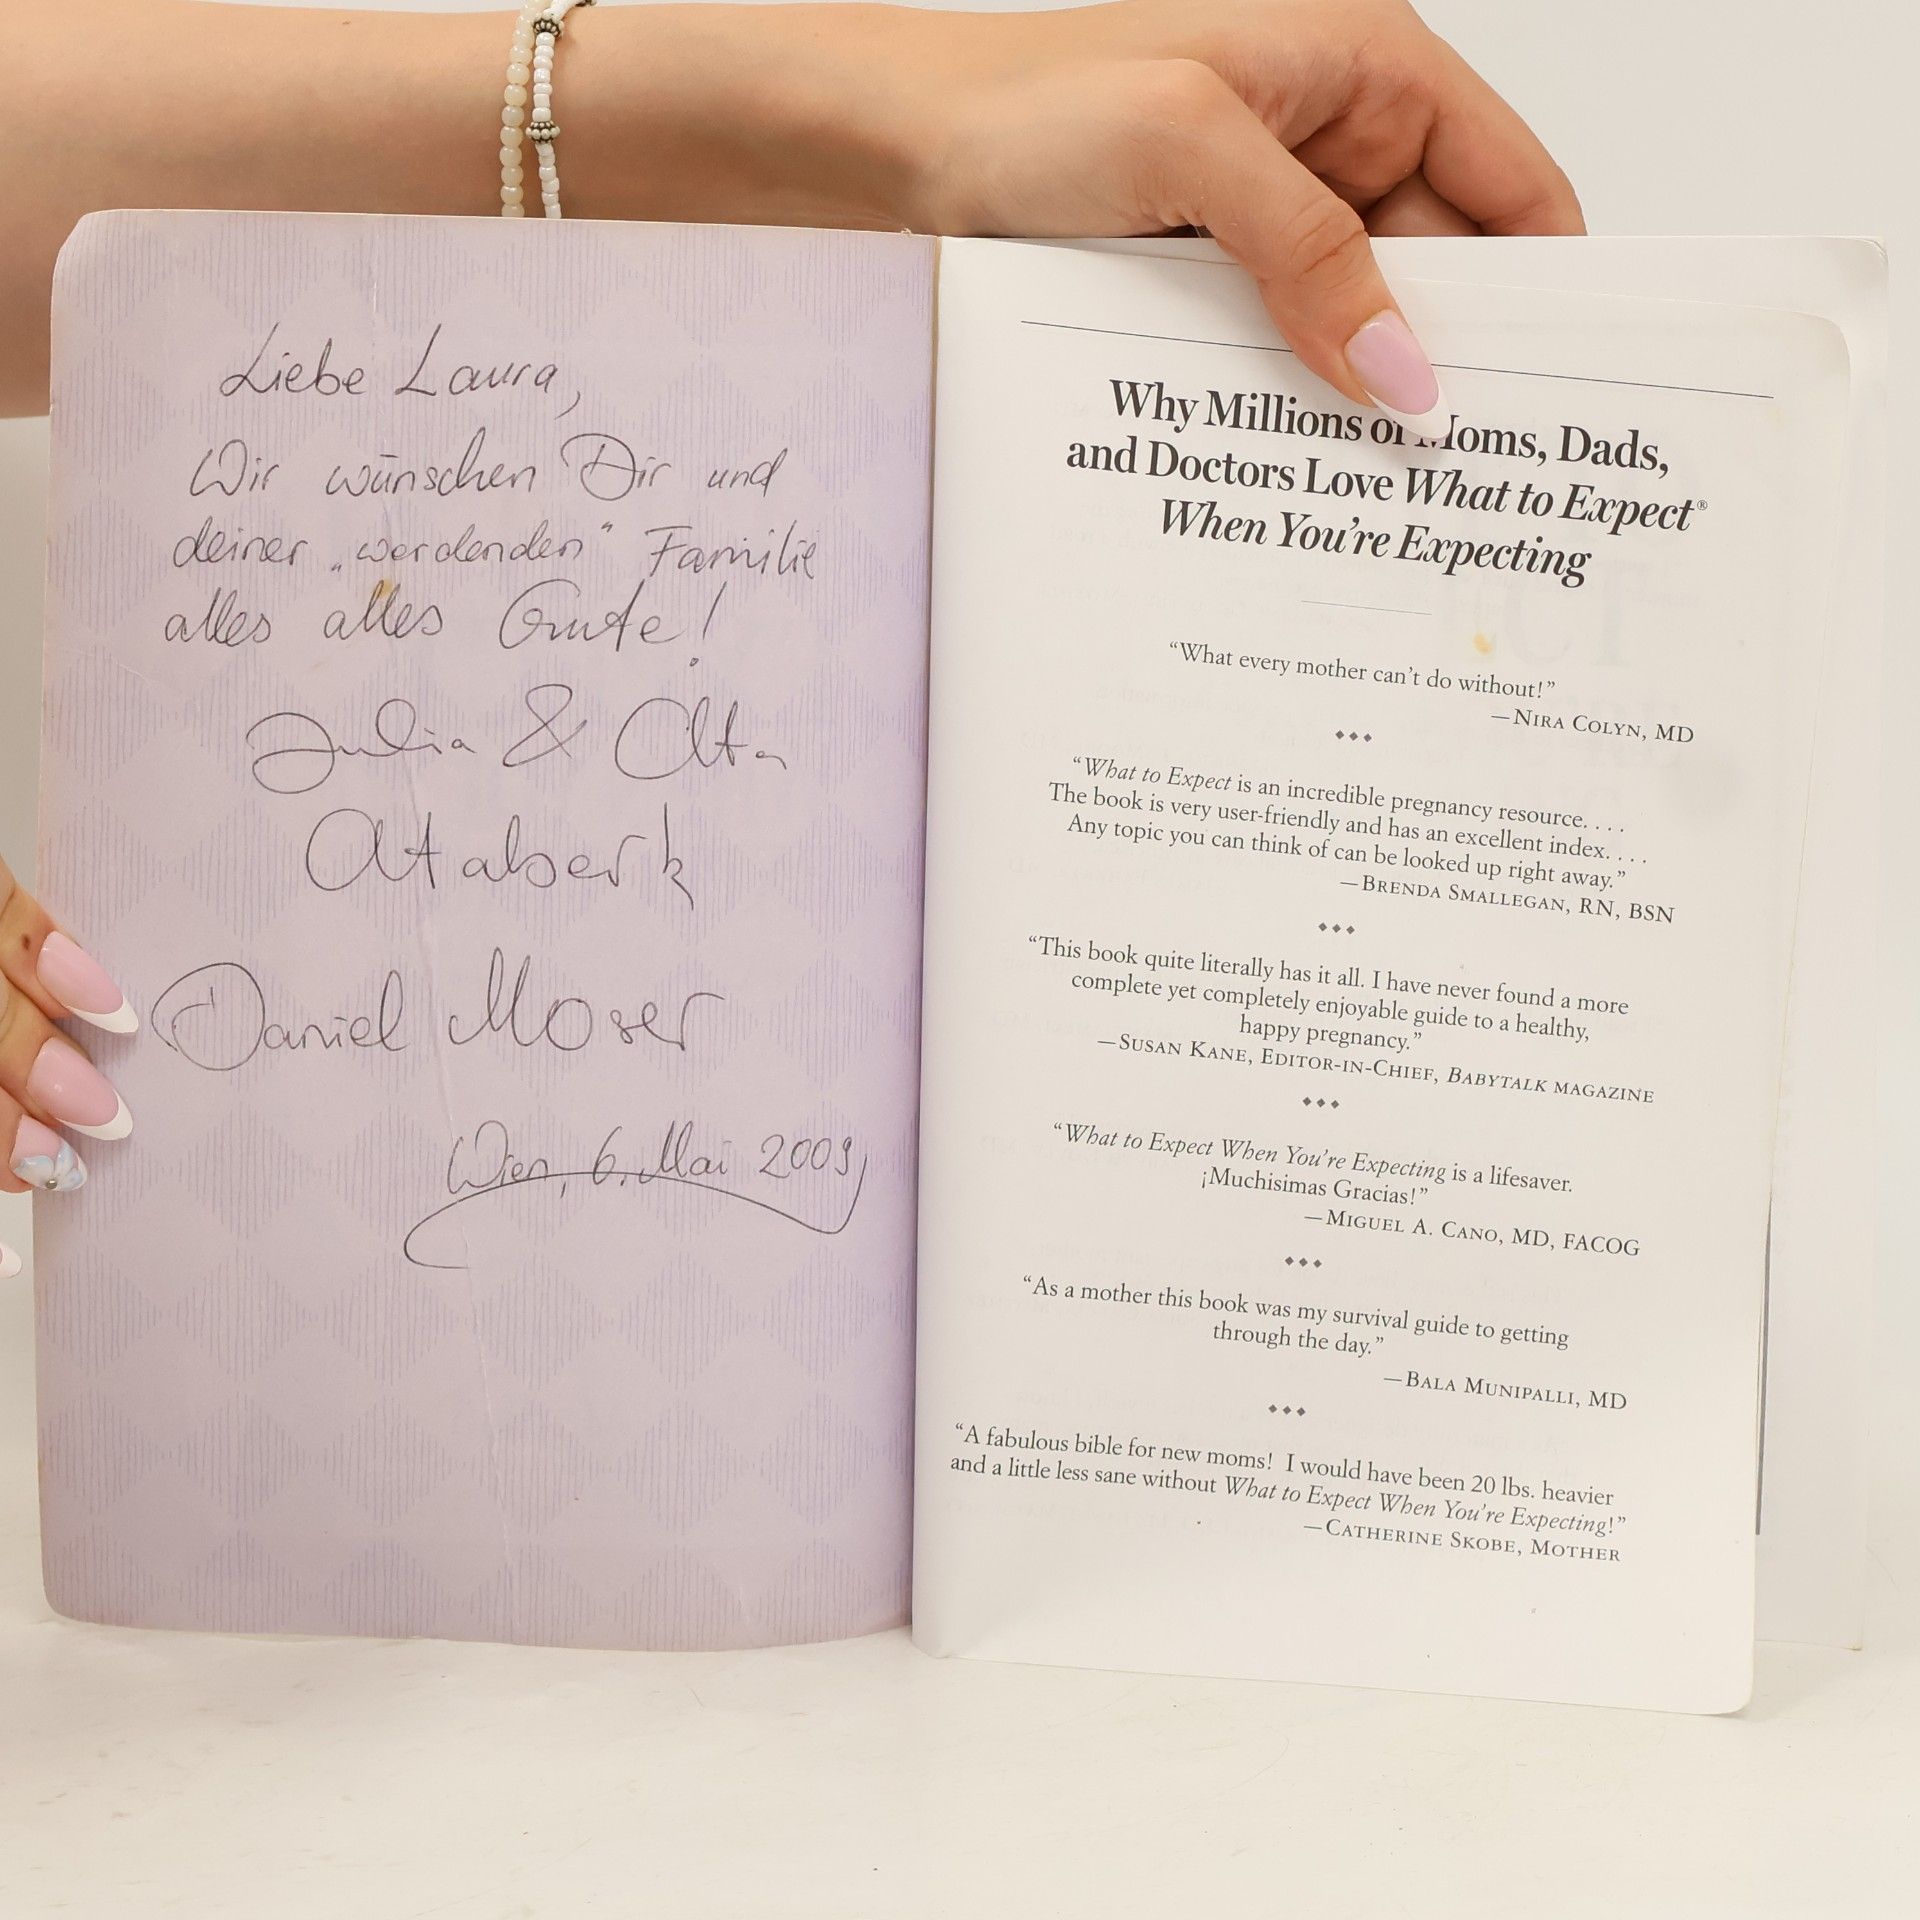 Liebe Laura,
Wir wünschen Dir und
deiner „werdenden“ Familie
alles alles Gute!
Julia & Ata
Ataberk
Daniel Moser
Wien, 6. Mai 2009
Why Millions of Moms, Dads,
and Doctors Love What to Expect®
When You’re Expecting
“What every mother can’t do without!”
—Nira Colyn, MD
“What to Expect is an incredible pregnancy resource. . . .
The book is very user-friendly and has an excellent index. . . .
Any topic you can think of can be looked up right away.”
—Brenda Smallegan, RN, BSN
“This book quite literally has it all. I have never found a more
complete yet completely enjoyable guide to a healthy,
happy pregnancy.”
—Susan Kane, Editor-in-Chief, Babytalk magazine
“What to Expect When You’re Expecting is a lifesaver.
¡Muchisimas Gracias!”
—Miguel A. Cano, MD, FACOG
“As a mother this book was my survival guide to getting
through the day.”
—Bala Munipalli, MD
“A fabulous bible for new moms! I would have been 20 lbs. heavier
and a little less sane without What to Expect When You’re Expecting!”
—Catherine Skobe, Mother